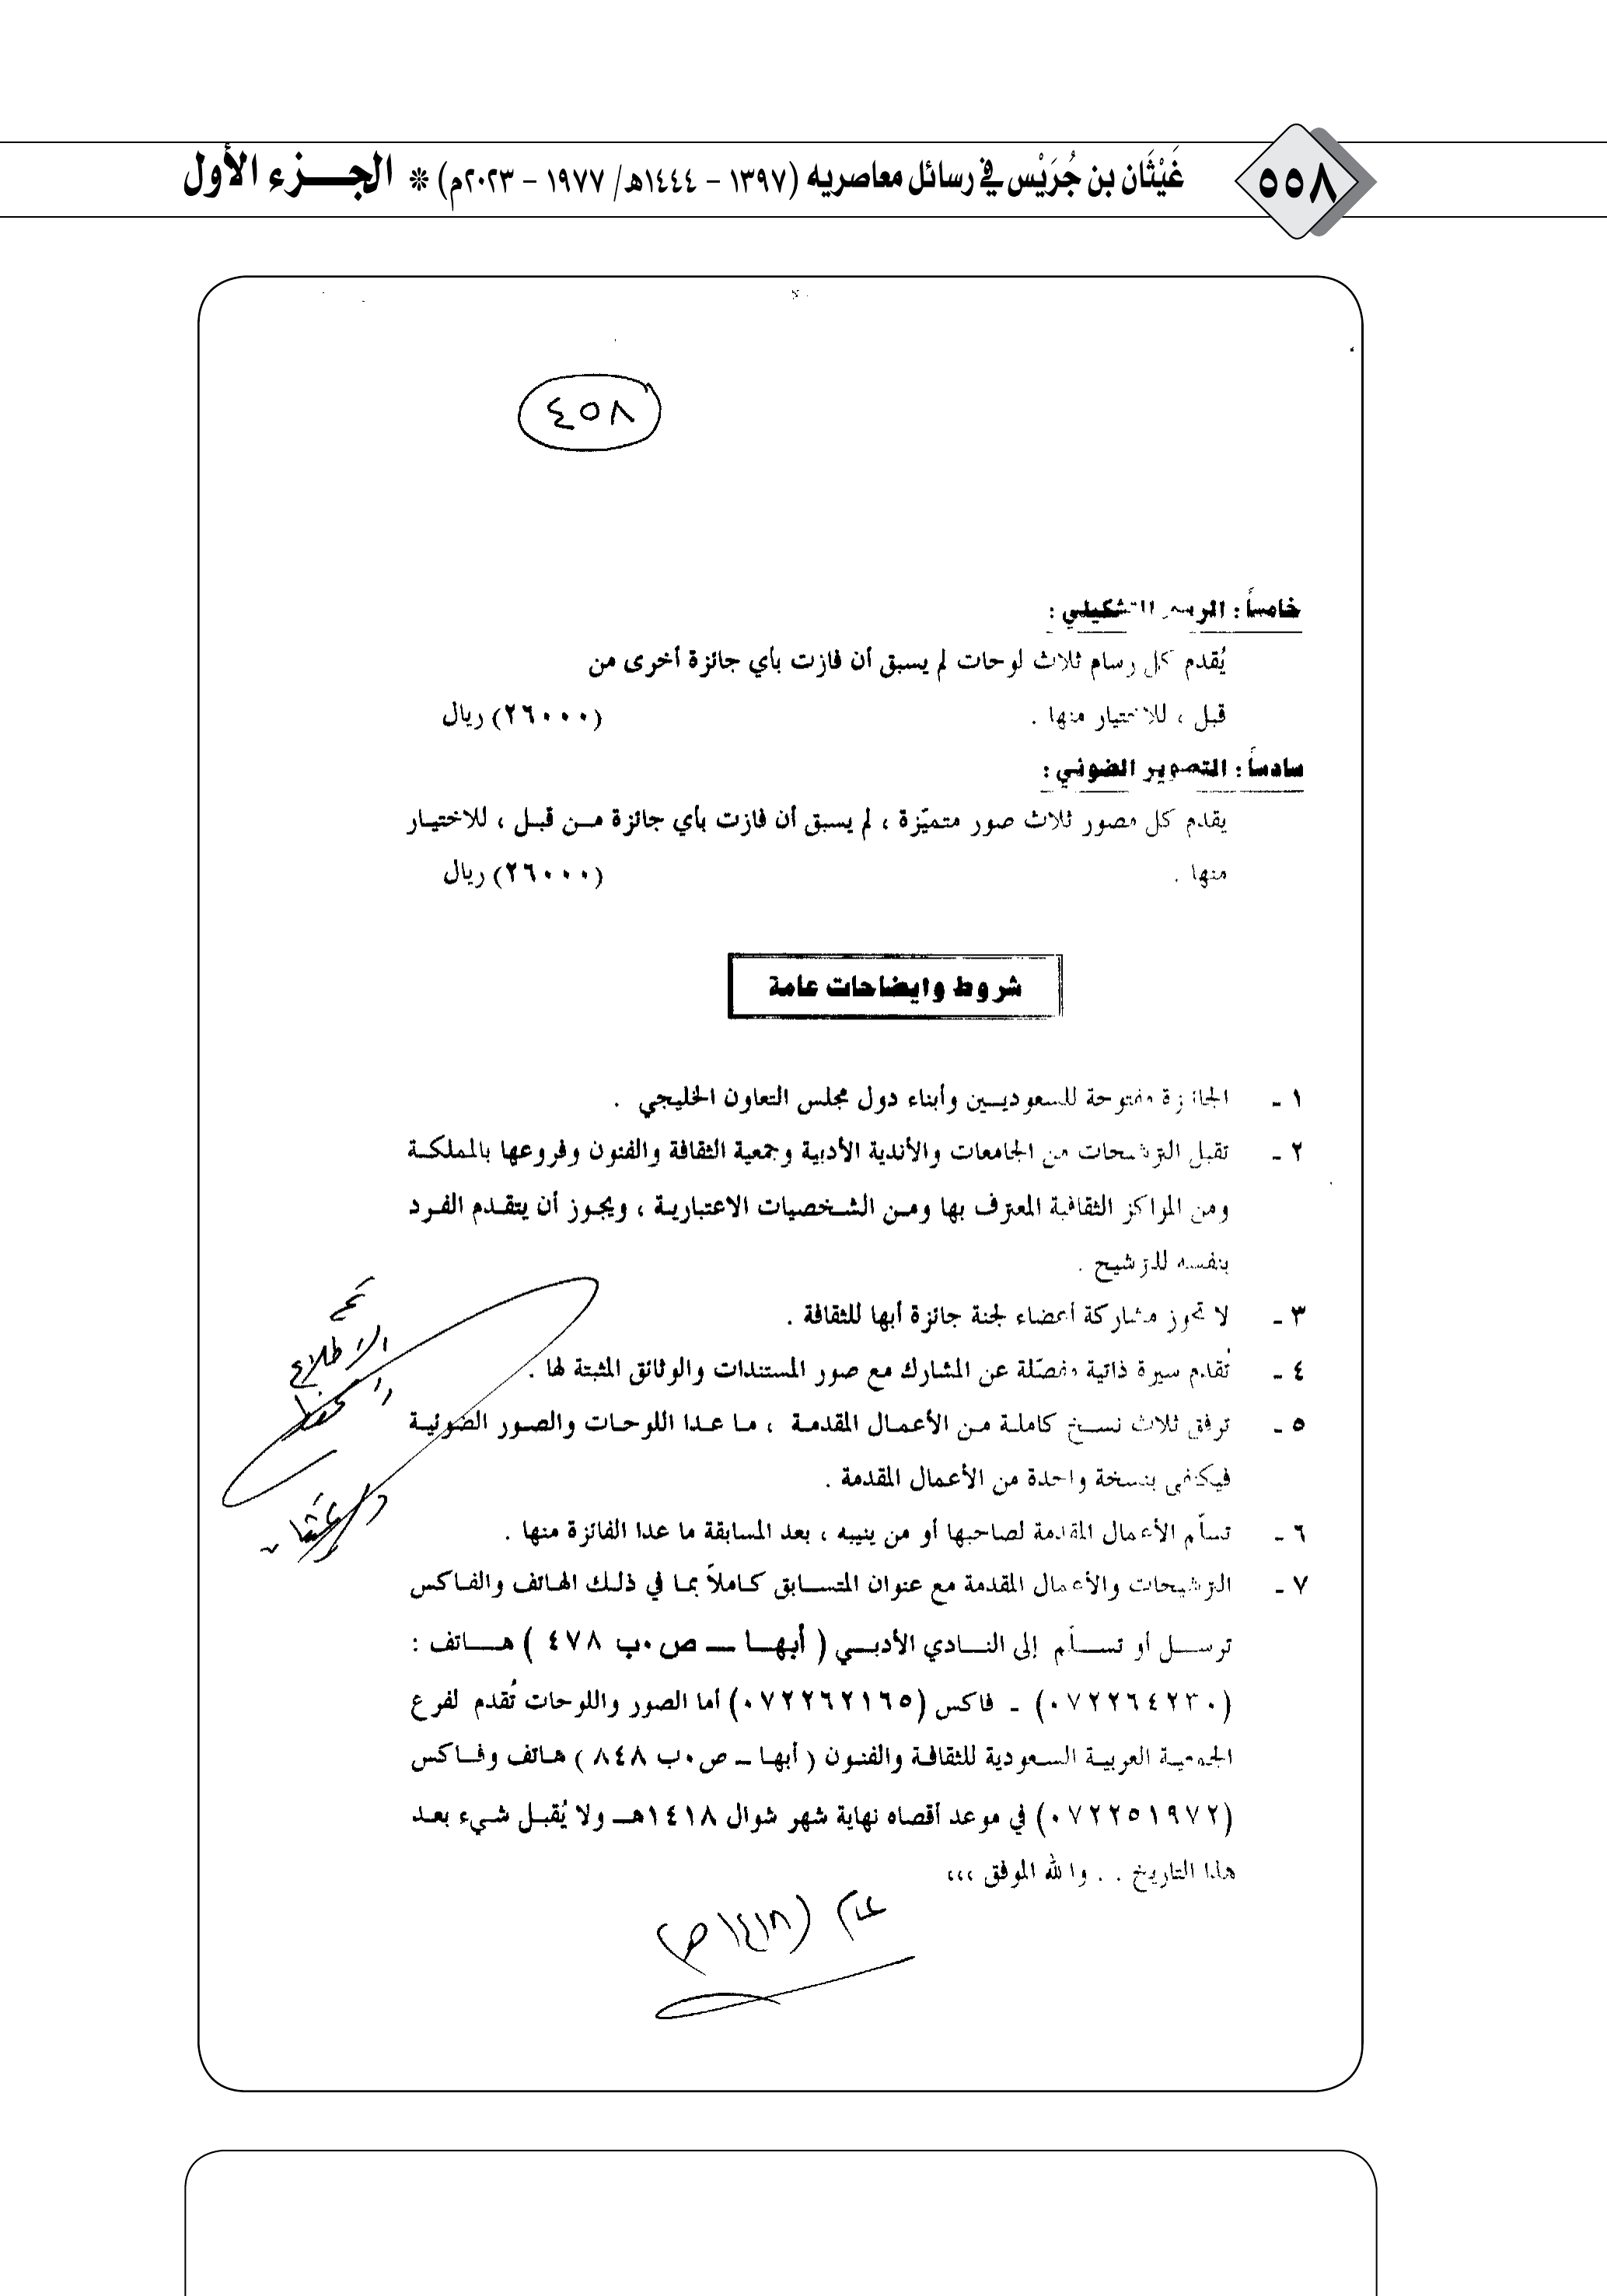 ٥٥٨ غَيْثَان بن جُرَيْس في رسائل معاصريه (١٣٩٧ - ١٤٤٤هـ/ ١٩٧٧ - ٢٠٢٣م) * الجـــزء الأول
٤٥٨
خامساً : الرسم التشكيلي :
يُقدم كل رسام ثلاث لوحات لم يسبق أن فازت بأي جائزة أخرى من
قبل ، للاختيار منها . (٢٦٠٠٠) ريال
سادساً : التصوير الضوئي :
يقدم كل مصور ثلاث صور متميّزة ، لم يسبق أن فازت بأي جائزة من قبل ، للاختيار
منها . (٢٦٠٠٠) ريال
شروط وايضاحات عامة
١ - الجائزة مفتوحة للسعوديين وأبناء دول مجلس التعاون الخليجي .
٢ - تقبل الترشيحات من الجامعات والأندية الأدبية وجمعية الثقافة والفنون وفروعها بالمملكة
ومن المراكز الثقافية المعترف بها ومن الشخصيات الاعتبارية ، ويجوز أن يتقدم الفرد
بنفسه للترشيح .
٣ - لا تجوز مشاركة أعضاء لجنة جائزة أبها للثقافة .
٤ - تُقدم سيرة ذاتية مفصّلة عن المشارك مع صور المستندات والوثائق المثبتة لها .
٥ - ترفق ثلاث نسخ كاملة من الأعمال المقدمة ، ما عدا اللوحات والصور الضوئية
فيكتفى بنسخة واحدة من الأعمال المقدمة .
٦ - تسلّم الأعمال المقدمة لصاحبها أو من ينيبه ، بعد المسابقة ما عدا الفائزة منها .
٧ - الترشيحات والأعمال المقدمة مع عنوان المتسابق كاملاً بما في ذلك الهاتف والفاكس
ترسل أو تسلّم إلى النادي الأدبي ( أبها ــ ص٠ب ٤٧٨ ) هاتف :
(٠٧٢٢٦٤٢٣٠) - فاكس (٠٧٢٢٦٢١٦٥) أما الصور واللوحات تُقدم لفرع
الجمعية العربية السعودية للثقافة والفنون ( أبها ــ ص٠ب ٨٤٨ ) هاتف وفاكس
(٠٧٢٢٥١٩٧٢) في موعد أقصاه نهاية شهر شوال ١٤١٨هـ ولا يُقبل شيء بعد
هذا التاريخ . . والله الموفق ،،،
تم
الاطلاع
والحفظ
د/غيثان
عام (١٤١٨هـ)